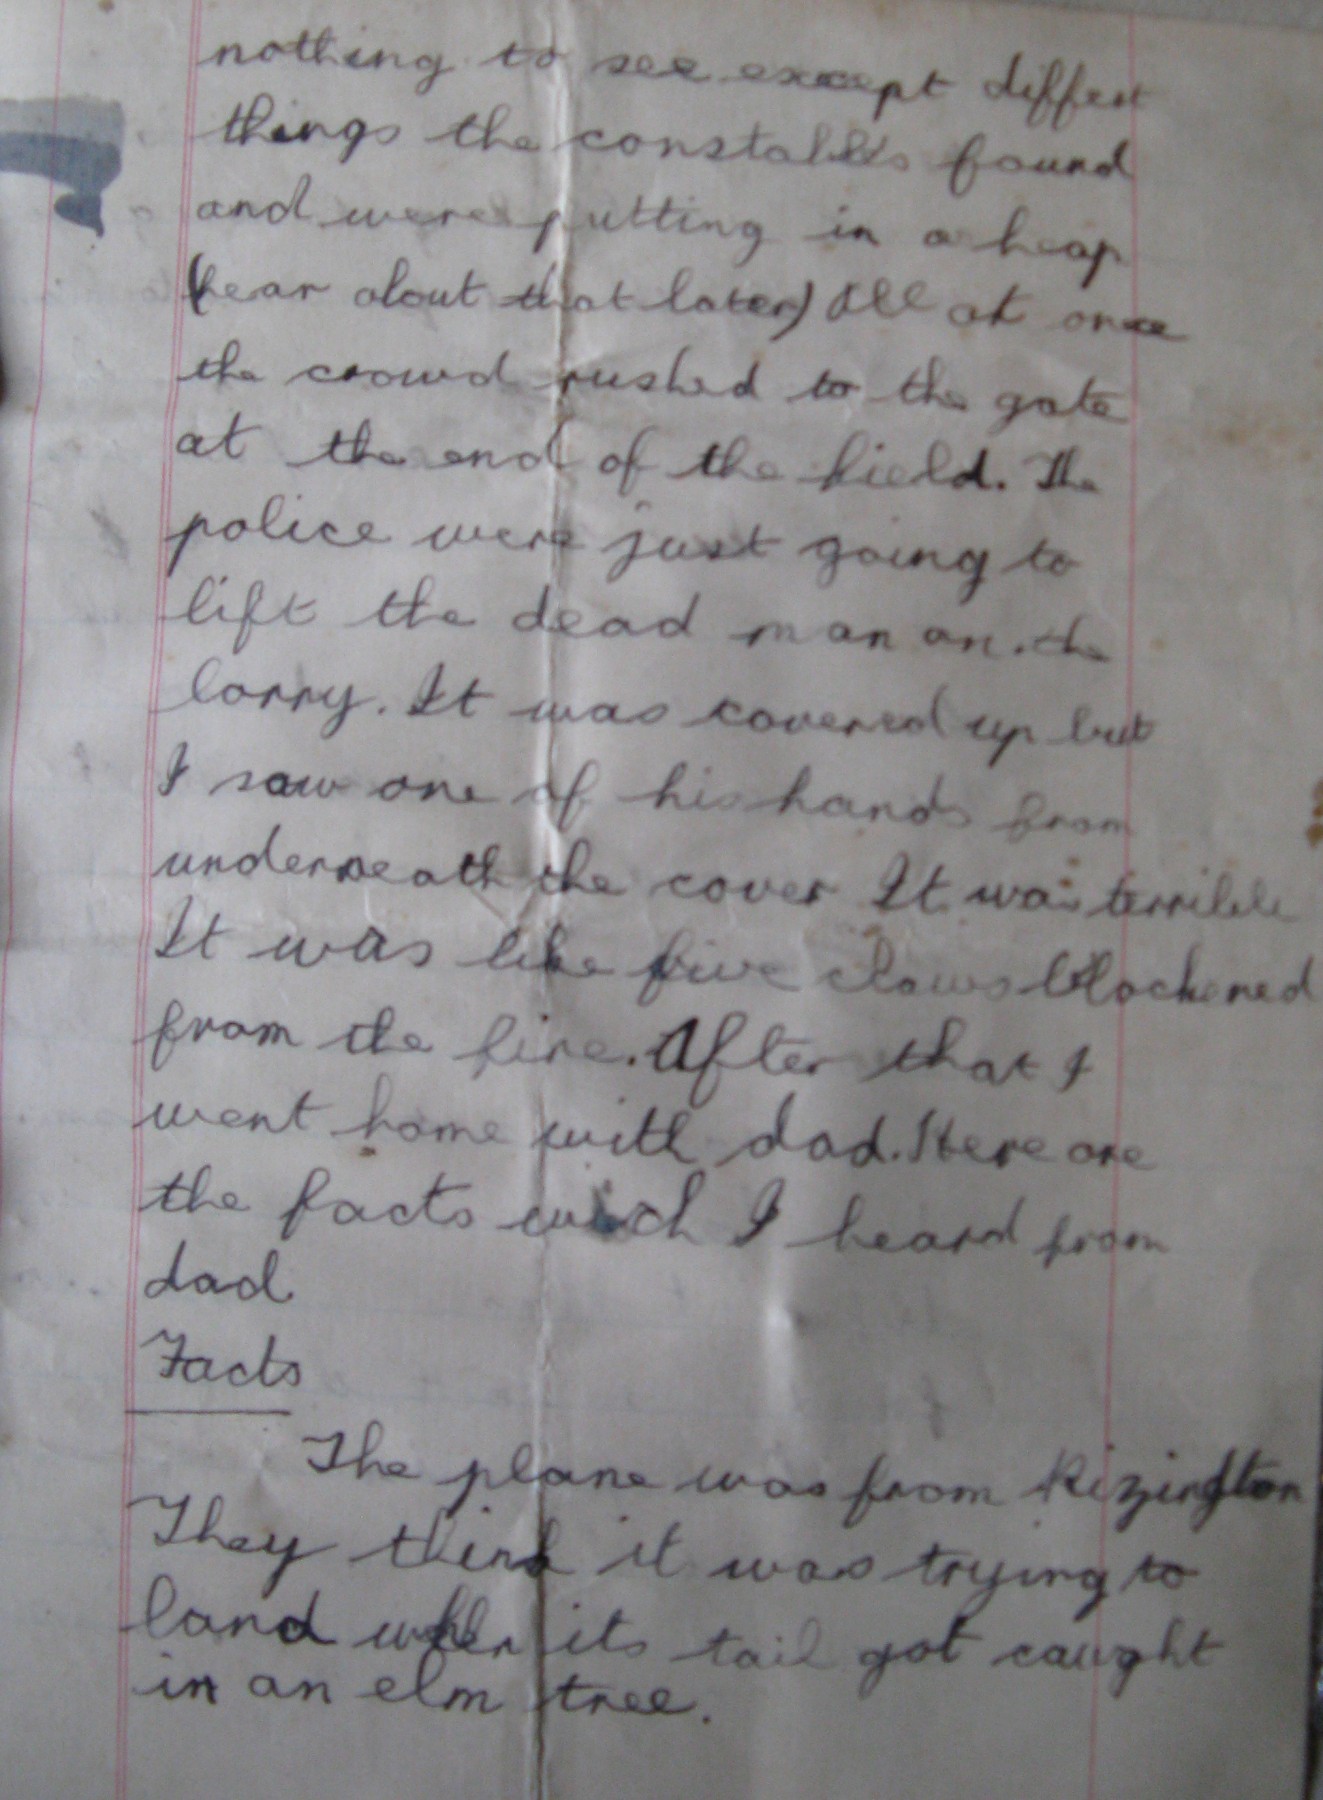 nothing to see except differt
things the constables found
and were putting in a heap
(hear about that later) All at once
the crowd rushed to the gate
at the end of the field. The
police were just going to
lift the dead man on the
lorry. It was covered up but
I saw one of his hands from
underneath the cover It was terrible
It was like five claws blackened
from the fire. After that I
went home with dad. Here are
the facts wich I heard from
dad
Facts
The plane was from
They think it was trying to
land when its tail got caught
in an elm tree.